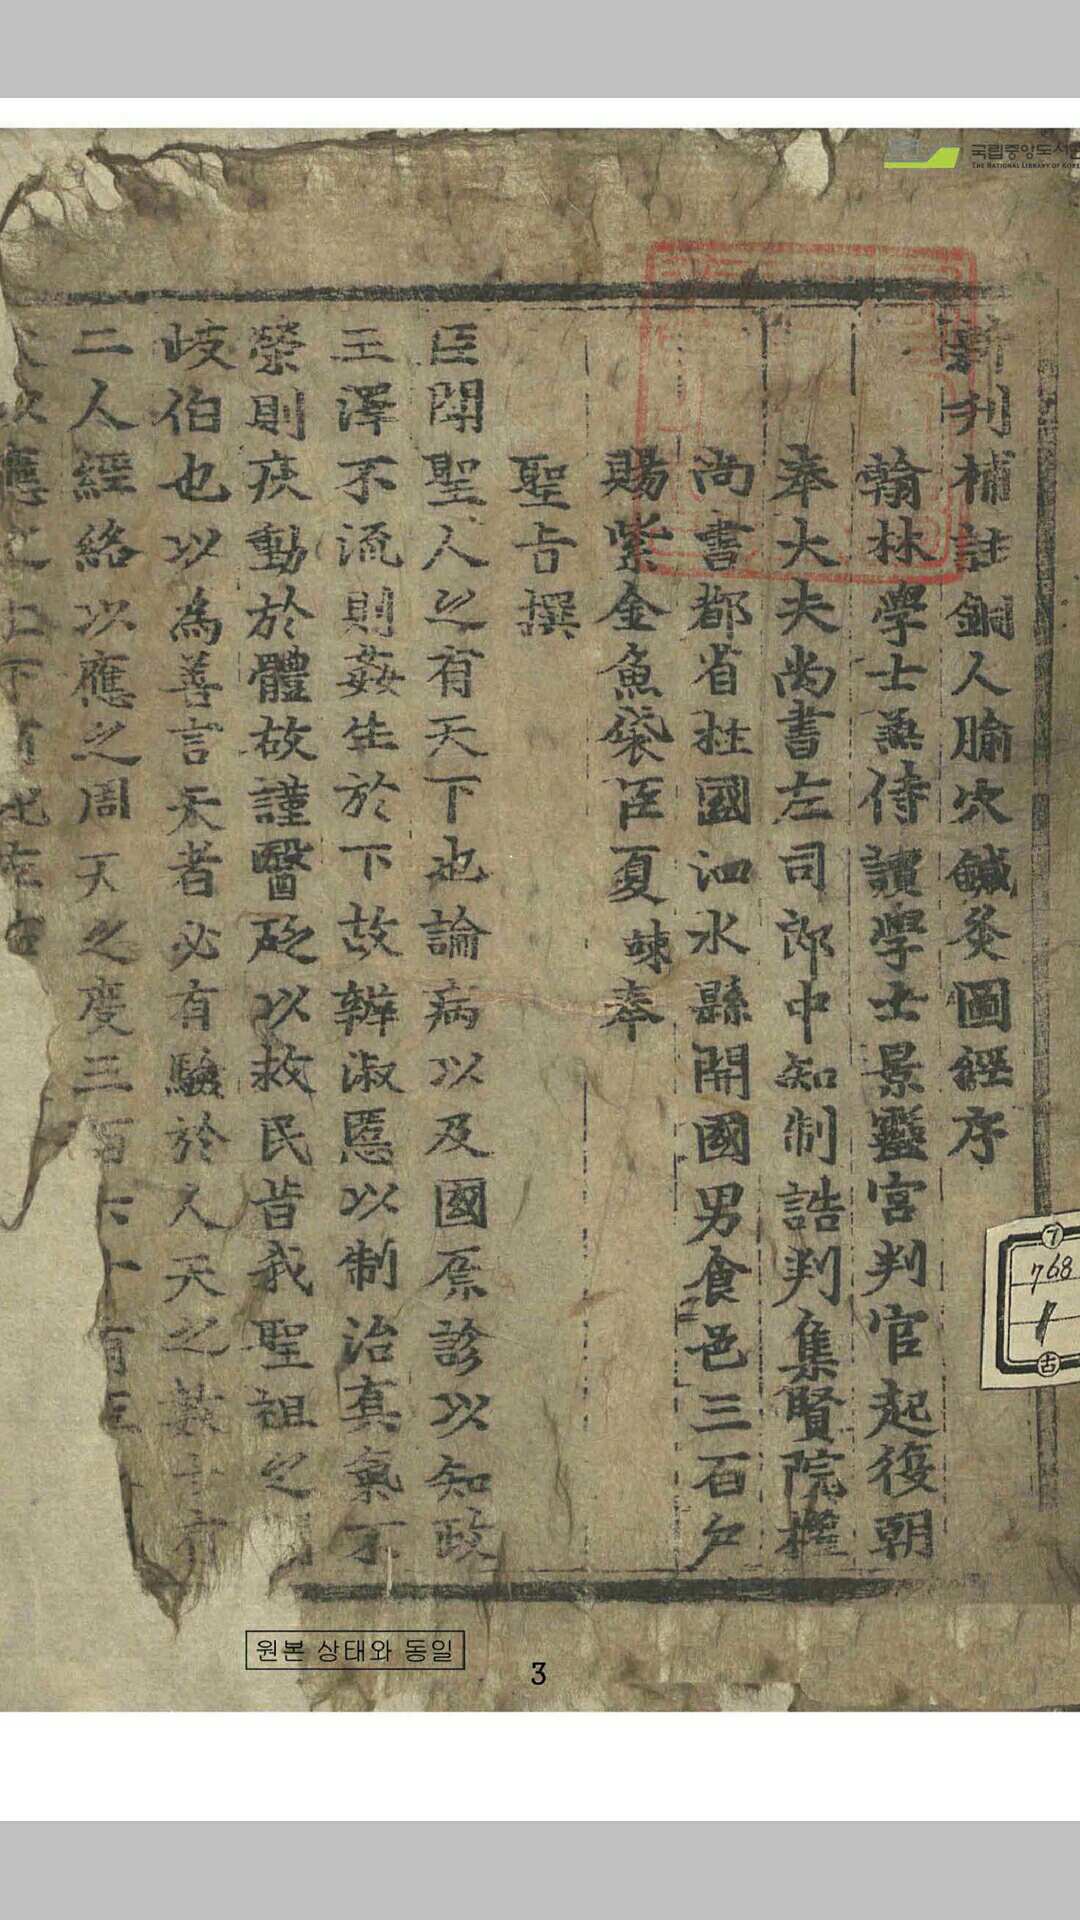 국립중앙도서관
THE NATIONAL LIBRARY OF KOREA
新刊補註銅人腧穴鍼灸圖經序
翰林學士兼侍讀學士景靈宮判官起復朝
奉大夫尚書左司郎中知制誥判集賢院權
尚書都省柱國泗水縣開國男食邑三百戶
賜紫金魚袋臣夏竦奉
聖旨撰
臣聞聖人之有天下也論病以及國原診以知政
王澤不流則姦生於下故辨淑慝以制治真氣不
榮則疾動於體故謹醫砭以救民昔我聖祖之
岐伯也以為善言天者必有驗於人天之數十有
二人經絡以應之周天之度三百六十有五
以應之上下有
7
768
1
古
원본 상태와 동일
3